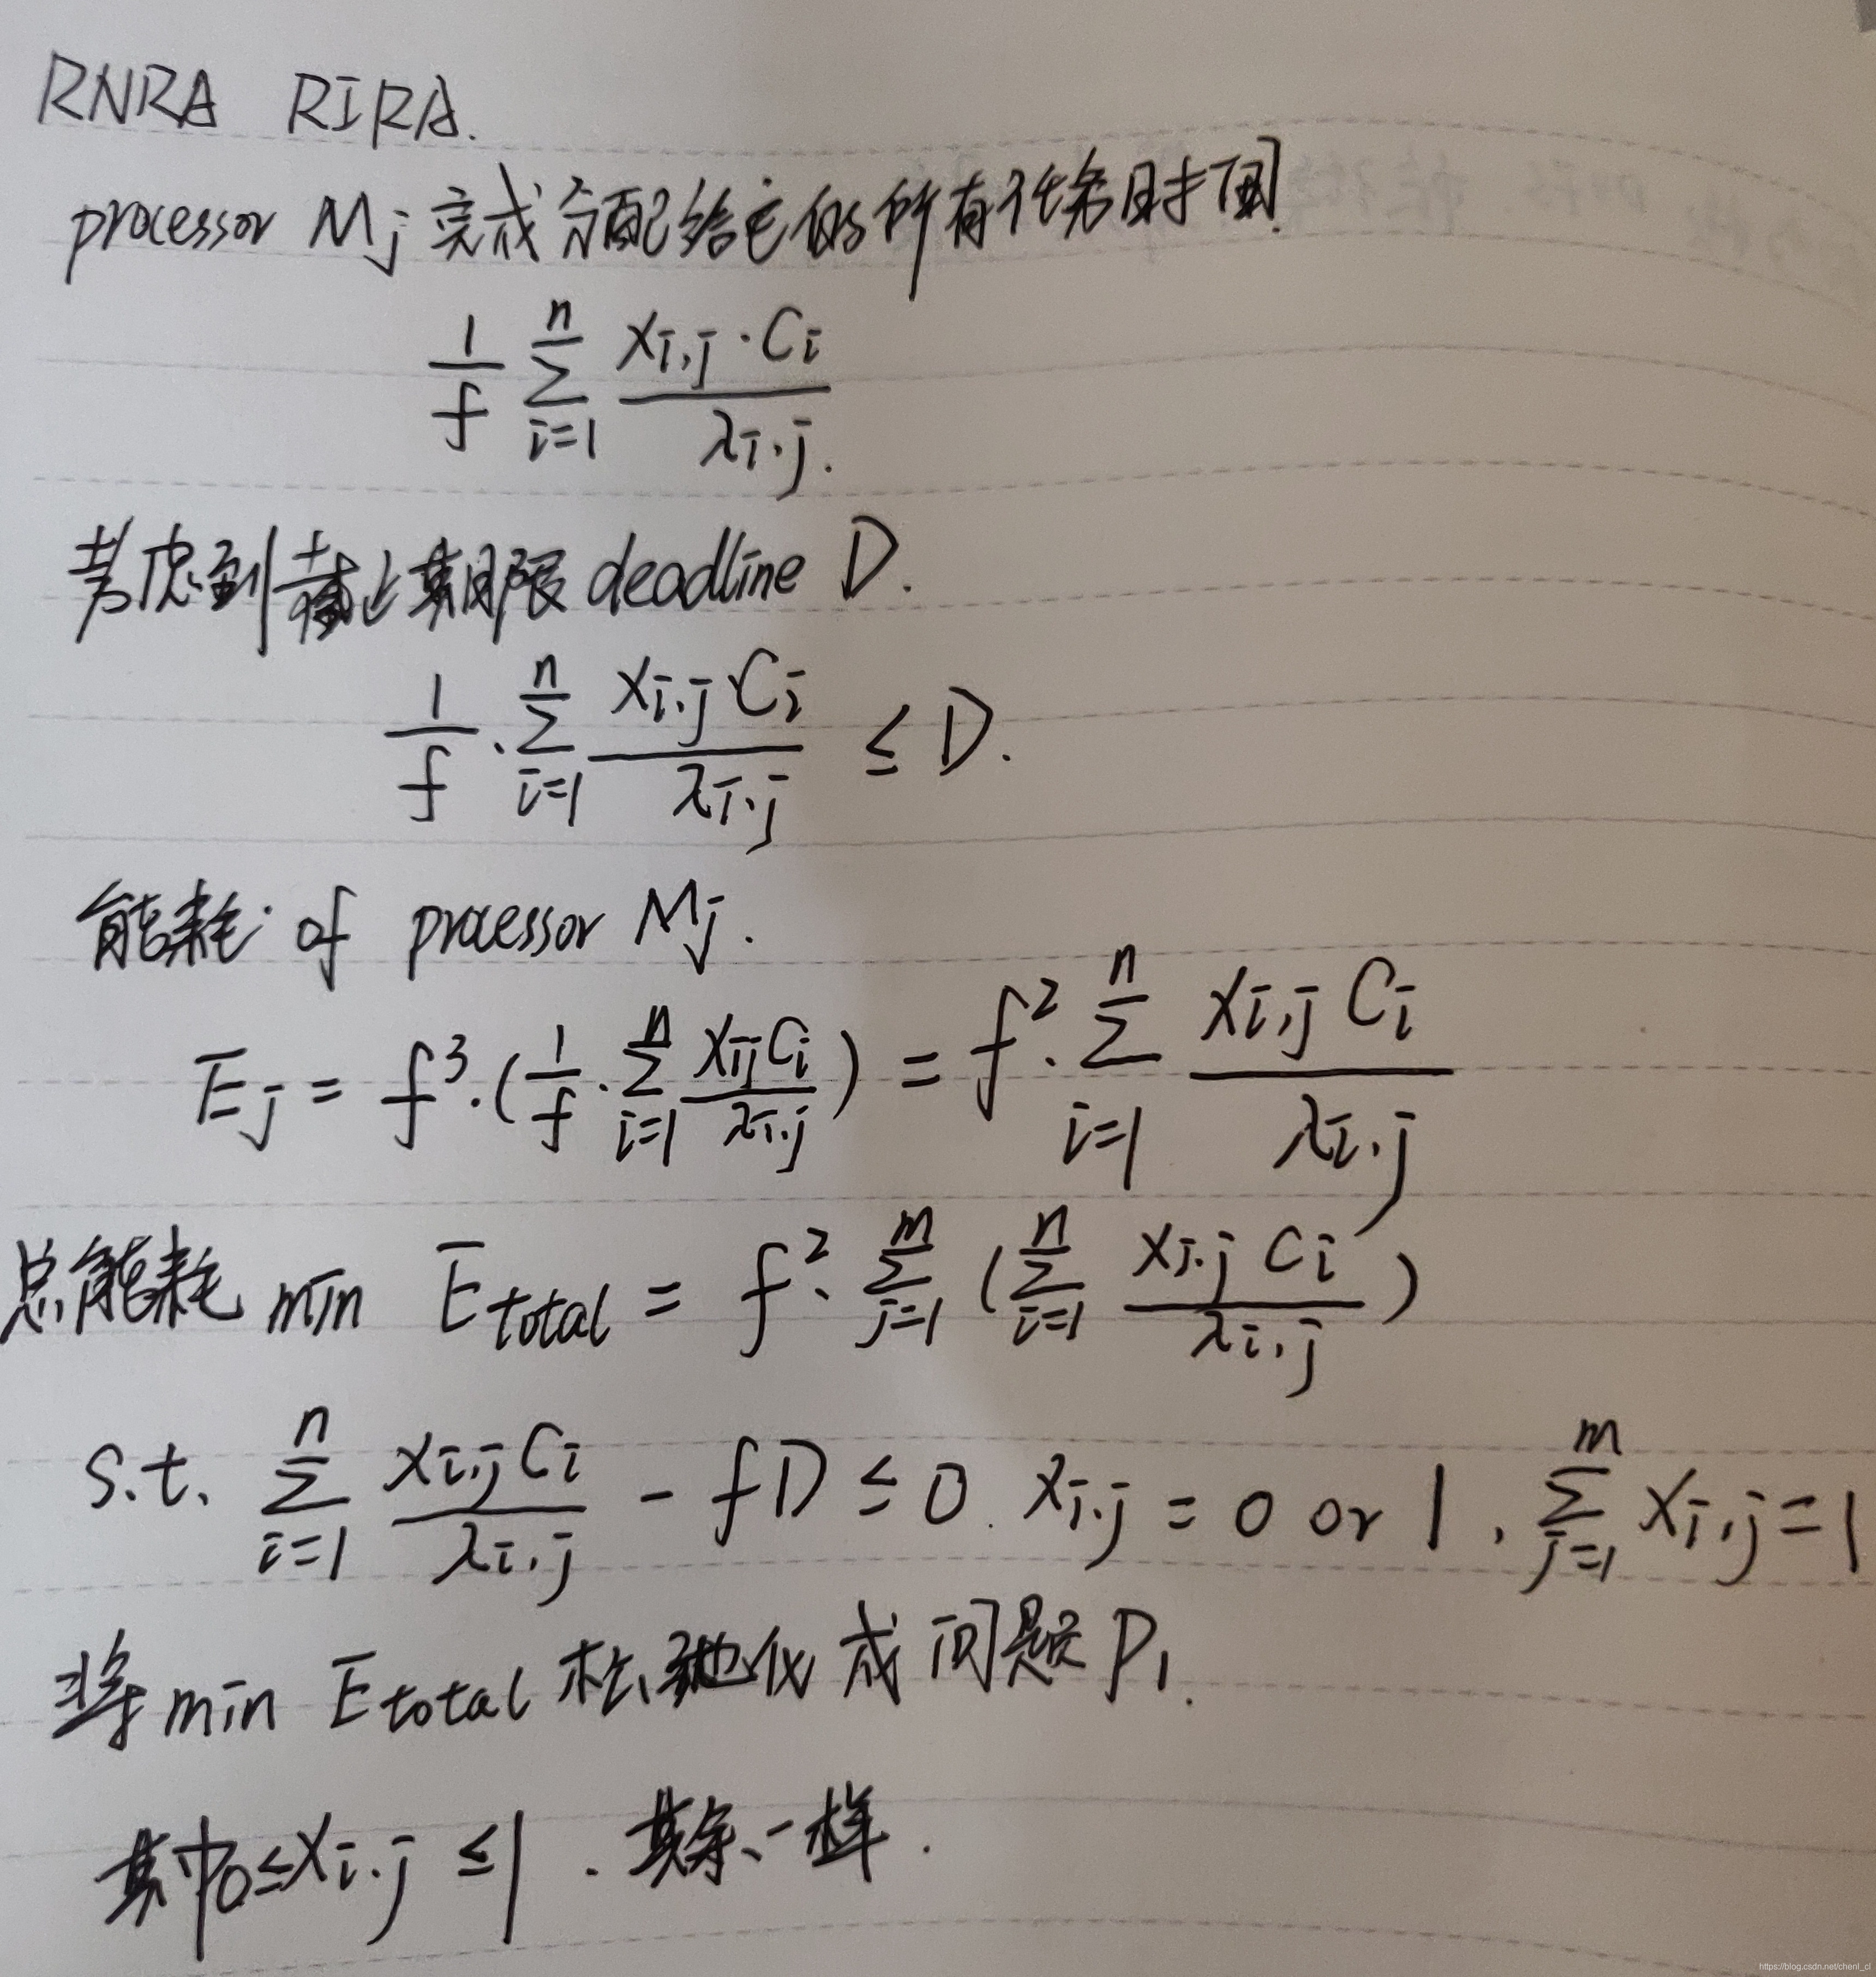 RNRA RIRA.
processor Mj 完成分配给它的所有任务时间
1/f ∑_{i=1}^{n} (x_{i,j}·C_i)/λ_{i,j}.
考虑到截止期限 deadline D.
1/f · ∑_{i=1}^{n} (x_{i,j} C_i)/λ_{i,j} ≤ D.
能耗 of processor Mj.
E_j = f^3·(1/f · ∑_{i=1}^{n} (x_{ij} C_i)/λ_{i,j}) = f^2·∑_{i=1}^{n} (x_{i,j} C_i)/λ_{i,j}
总能耗 min E_total = f^2·∑_{j=1}^{m} (∑_{i=1}^{n} (x_{i,j} C_i)/λ_{i,j})
s.t. ∑_{i=1}^{n} (x_{i,j} C_i)/λ_{i,j} - fD ≤ 0. x_{i,j} = 0 or 1, ∑_{j=1}^{m} x_{i,j} = 1
将 min E_total 松弛化成问题 P_1.
其中 0≤x_{i,j} ≤1. 其余一样.
https://blog.csdn.net/chenl_cl